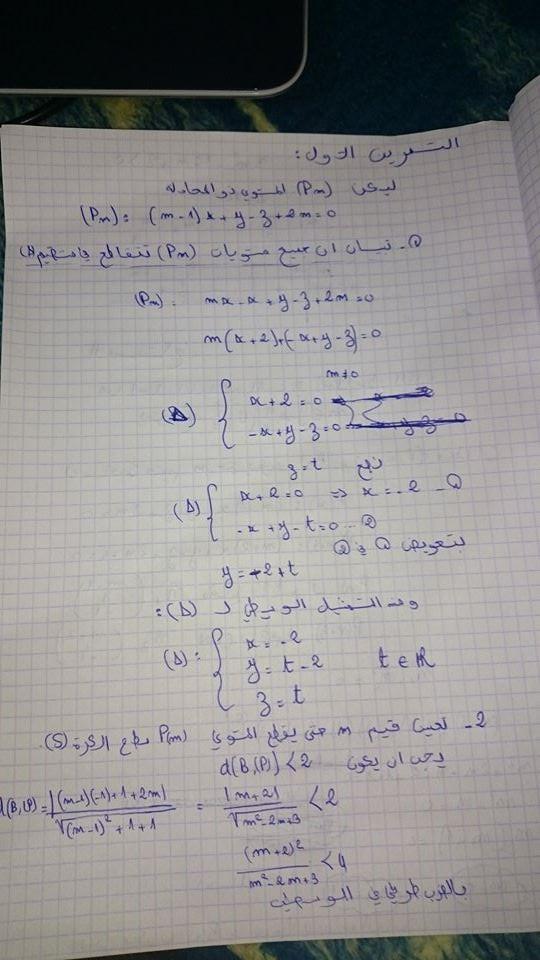 التمرين الاول:
ليكن (Pm) المستوي ذو المعادلة
(Pm): (m-1)x+y-z+2m=0
①- تبيان ان جميع مستويات (Pm) تتقاطع في مستقيم (Δ)
(Pm): mx-x+y-z+2m=0
m(x+2)+(-x+y-z)=0
m≠0
(Δ) { x+2=0
-x+y-z=0
نضع z=t
(Δ) { x+2=0 ⇒ x=-2 -①
-x+y-t=0 -②
بتعويض ① في ②
y=-2+t
ومنه التمثيل الوسيطي لـ (Δ):
(Δ): { x=-2
y=t-2 t∈ℝ
z=t
2- تعيين قيم m حتى يقطع المستوي P(m) سطح الكرة (S).
يجب ان يكون d(B,(P))<2
d(B,(P))=|(m-1)(-1)+1+2m|/√((m-1)²+1+1) = |m+2|/√(m²-2m+3) <2
(m+2)²/(m²-2m+3) <4